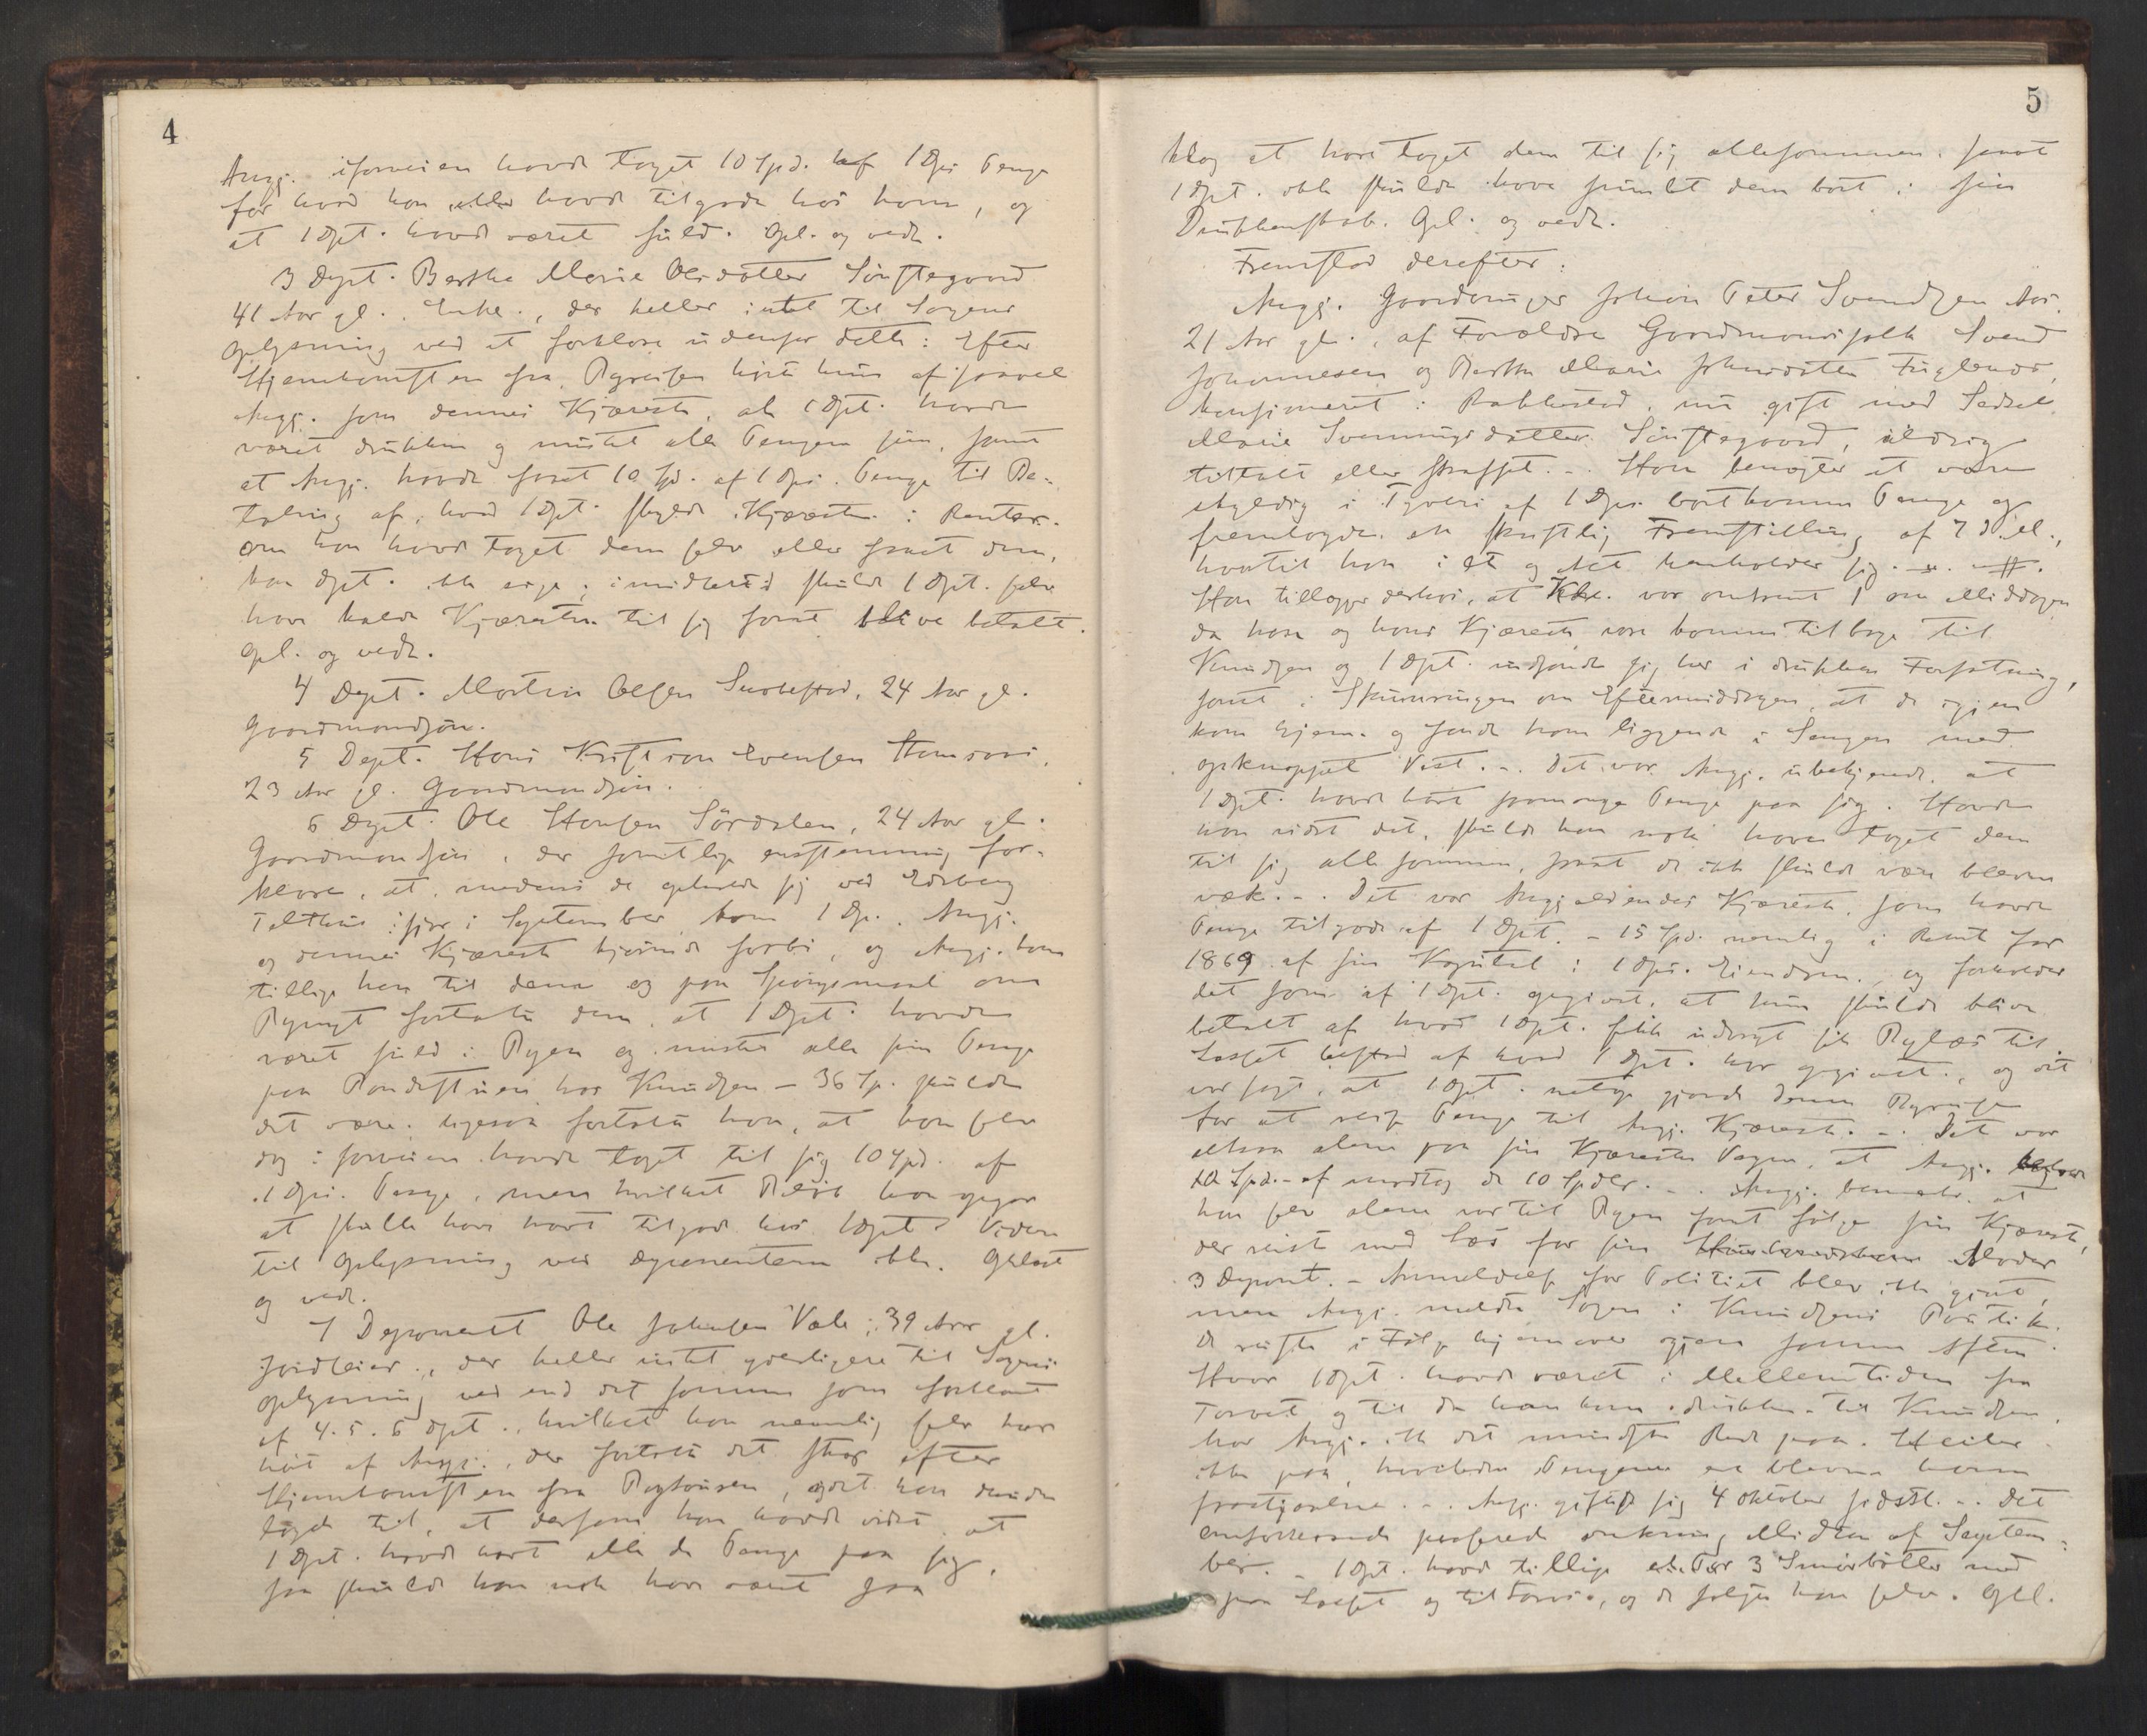 4
Angj. iforveien havde taget 10 Spd. af 1 Dpts Penge
for hvad han havde tilgode hos ham, og
at 1 Dpt. havde været fuld. Opl. og vedt.
3 Dept. Berthe Marie Olsdatter Sønstegaard
41 Aar gl. Enke, der heller intet til Sagens
Oplysning ved at forklare udenfor dette: Efter
Hjemkomsten fra Byreisen hørte hun af saavel
Angj. som dennes Kjæreste, at 1 Dpt. havde
været drukken og mistet alle Pengene sine, samt
at Angj. havde faaet 10 Spd. af 1 Dpts. Penge til Be-
taling af, hvad 1 Dpt. skyldte Kjæresten i Renter.
Om han havde taget dem selv eller faaet dem,
kan Dpt. ikke sige; imidlertid skulde 1 Dpt. selv
have kaldt Kjæresten til sig forat blive betalt.
Opl. og vedt.
4 Dept. Martin Olsen 24 Aar gl.
Gaardmandssøn.
5 Dept. Hans Kristian Evensen
23 Aar gl. Gaardmandssøn.
6 Dept. Ole Hansen Sørdalen, 24 Aar gl.
Gaardmandssøn, der samtlige enstemmig for-
klare, at, medens de opholdt sig ved Edsberg
Telthus ifjor i September, kom 1 Dp., Angj.
og dennes Kjæreste kjørende forbi, og Angj. kom
tillige hen til dem og paa Spørgsmaal om
Bynyt fortalte dem, at 1 Dpt. havde
været fuld i Byen og mistet alle sine Penge
paa hos Knudsen – 36 Sp. skulde
det være; ligesaa fortalte han, at han selv
dog i forveien havde taget til sig 10 Spd. af
1 Dpts. Penge, men hvilket Beløb han opgav
at skulle have havt tilgode hos 1 Dpt. Videre
til Oplysning ved Deponenterne ikke. Oplæst
og vedt.
7 Deponent Ole Johnsen Vale, 39 Aar gl.
Jordleier, der heller intet yderligere til Sagens
Oplysning ved end det samme som forklaret
af 4. 5. 6 Dpt., hvilket han nemlig selv har
hørt af Angj., der fortalte det strax efter
Hjemkomsten fra Bytouren, idet han
lagde til, at dersom han havde vidst, at
1 Dpt. havde havt alle de Penge paa sig,
saa skulde han nok have været saa
5
klog at have taget dem til sig allesammen, forat
1 Dpt. ikke skulde have sumlet dem bort i sin
Drukkenskab. Opl. og vedt.
Fremstod derefter:
Angj. Gaardbruger Johan Peter Svendsen
21 Aar gl., af Forældre Gaardmandsfolk Svend
Johannesen og Berthe Marie Johnsdatter
konfirmeret i Rakkestad, nu gift med Sedsel
Marie Svenningsdatter Sønstegaard, aldrig
tiltalt eller straffet. – Han benegter at være
skyldig i Tyveri af 1 Dpts. bortkomne Penge og
fremlagde en skriftlig Fremstilling af 7 d. M.,
hvortil han i Et og Alt henholder sig.
Han tillægger derhos, at Kl. var omtrent 1 om Middagen
da han og hans Kjæreste vare komne tilbage til
Knudsen og 1 Dpt. indfandt sig her i drukken Forfatning,
samt i Skumringen om Eftermiddagen, at de igjen
kom hjem og fandt ham liggende i Sengen med
opknappet Vest. – Det var Angj. ubekjendt, at
1 Dpt. havde havt saamange Penge paa sig. Havde
han vidst det, skulde han nok have taget dem
til sig alle sammen, forat de ikke skulde være blevne
væk. – Det var Angjældendes Kjæreste, som havde
Penge tilgode af 1 Dpt. – 15 Spd. nemlig i Rente for
1869 af sin Kapital i 1 Dpts. Eiendom, og forholder
det som af 1 Dpt. opgivet, at hun skulde blive
betalt af hvad 1 Dpt. fik for sit Bylæs til.
Læsset bestod af hvad 1 Dpt. har opgivet, og det
var sagt, at 1 Dpt. netop gjorde denne Byreise
for at skaffe Penge til Angj. Kjæreste. – Det var
altsaa alene paa sin Kjærestes Vegne, at Angj.
modtog de 10 Spdlr. – Angj. bemærker, at
han selv alene var til Byen forat følge sin Kjæreste,
der reiste med Læs for sin Moder
3 Deponent. – Anmeldelse for Politiet blev ikke gjort,
men Angj. meldte Sagen i Knudsens Butik.
De reiste i Følge hjemover igjen samme Aften.
Hvor 1 Dpt. havde været i Mellemtiden fra
Torvet og til da han kom drukken til Knudsen,
har Angj. ikke det mindste Rede paa. Heller
ikke paa, hvorledes Pengene ere blevne ham
frastjaalne. – Angj. giftede sig 4 Oktober sidstl. – Det
omforklarede passerede omkring Midten af Septem-
ber. – 1 Dpt. havde tillige 3 Smørbøtter med
paa Læsset og til Torvs, og de solgte han selv. Opl.